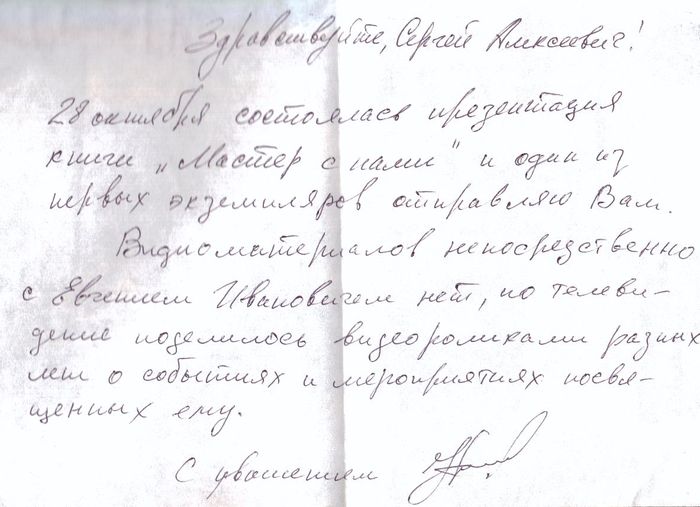 Здравствуйте, Сергей Алексеевич!
28 октября состоялась презентация
книги „Мастер с нами" и один из
первых экземпляров отправляю Вам.
Видиоматериалов непосредственно
с Евгением Ивановичем нет, но телеви-
дение поделилось видеороликами разных
лет о событиях и мероприятиях посвя-
щенных ему.
С уважением